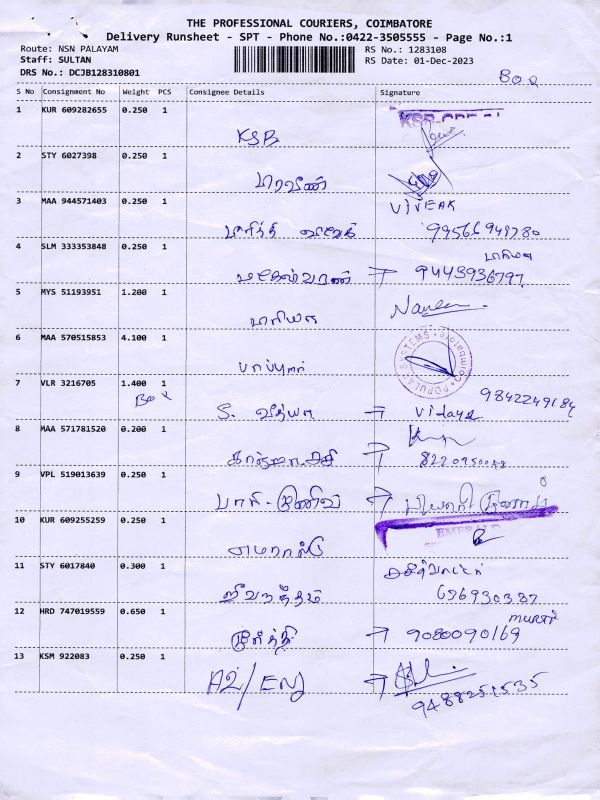 THE PROFESSIONAL COURIERS, COIMBATORE
Delivery Runsheet - SPT - Phone No.:0422-3505555 - Page No.:1
Route: NSN PALAYAM
RS No.: 1283108
Staff: SULTAN
RS Date: 01-Dec-2023
DRS No.: DCJB128310801
S No Consignment No Weight PCS Consignee Details Signature
1 KUR 609282655 0.250 1
KSB
2 STY 6027398 0.250 1
பிரவீண்
3 MAA 944571403 0.250 1 VIVEAK
விவேக் 99566948780
4 SLM 333353848 0.250 1
மகேஸ்வரண் → 9443936797
5 MYS 51193951 1.200 1 Naveen
6 MAA 570515853 4.100 1
POPULAR SYSTEMS * Coimbatore
பாப்புலர்
7 VLR 3216705 1.400 1 9842249184
Box
S. வித்யா → Vidaya
8 MAA 571781520 0.200 1
9 VPL 519013639 0.250 1
10 KUR 609255259 0.250 1 EMERALD
எமரால்டு
11 STY 6017840 0.300 1
ஜீவரத்தினம் 636930387
12 HRD 747019559 0.650 1
மூர்த்தி → 9080090169
13 KSM 922083 0.250 1
A2/ENJ →
9488251535